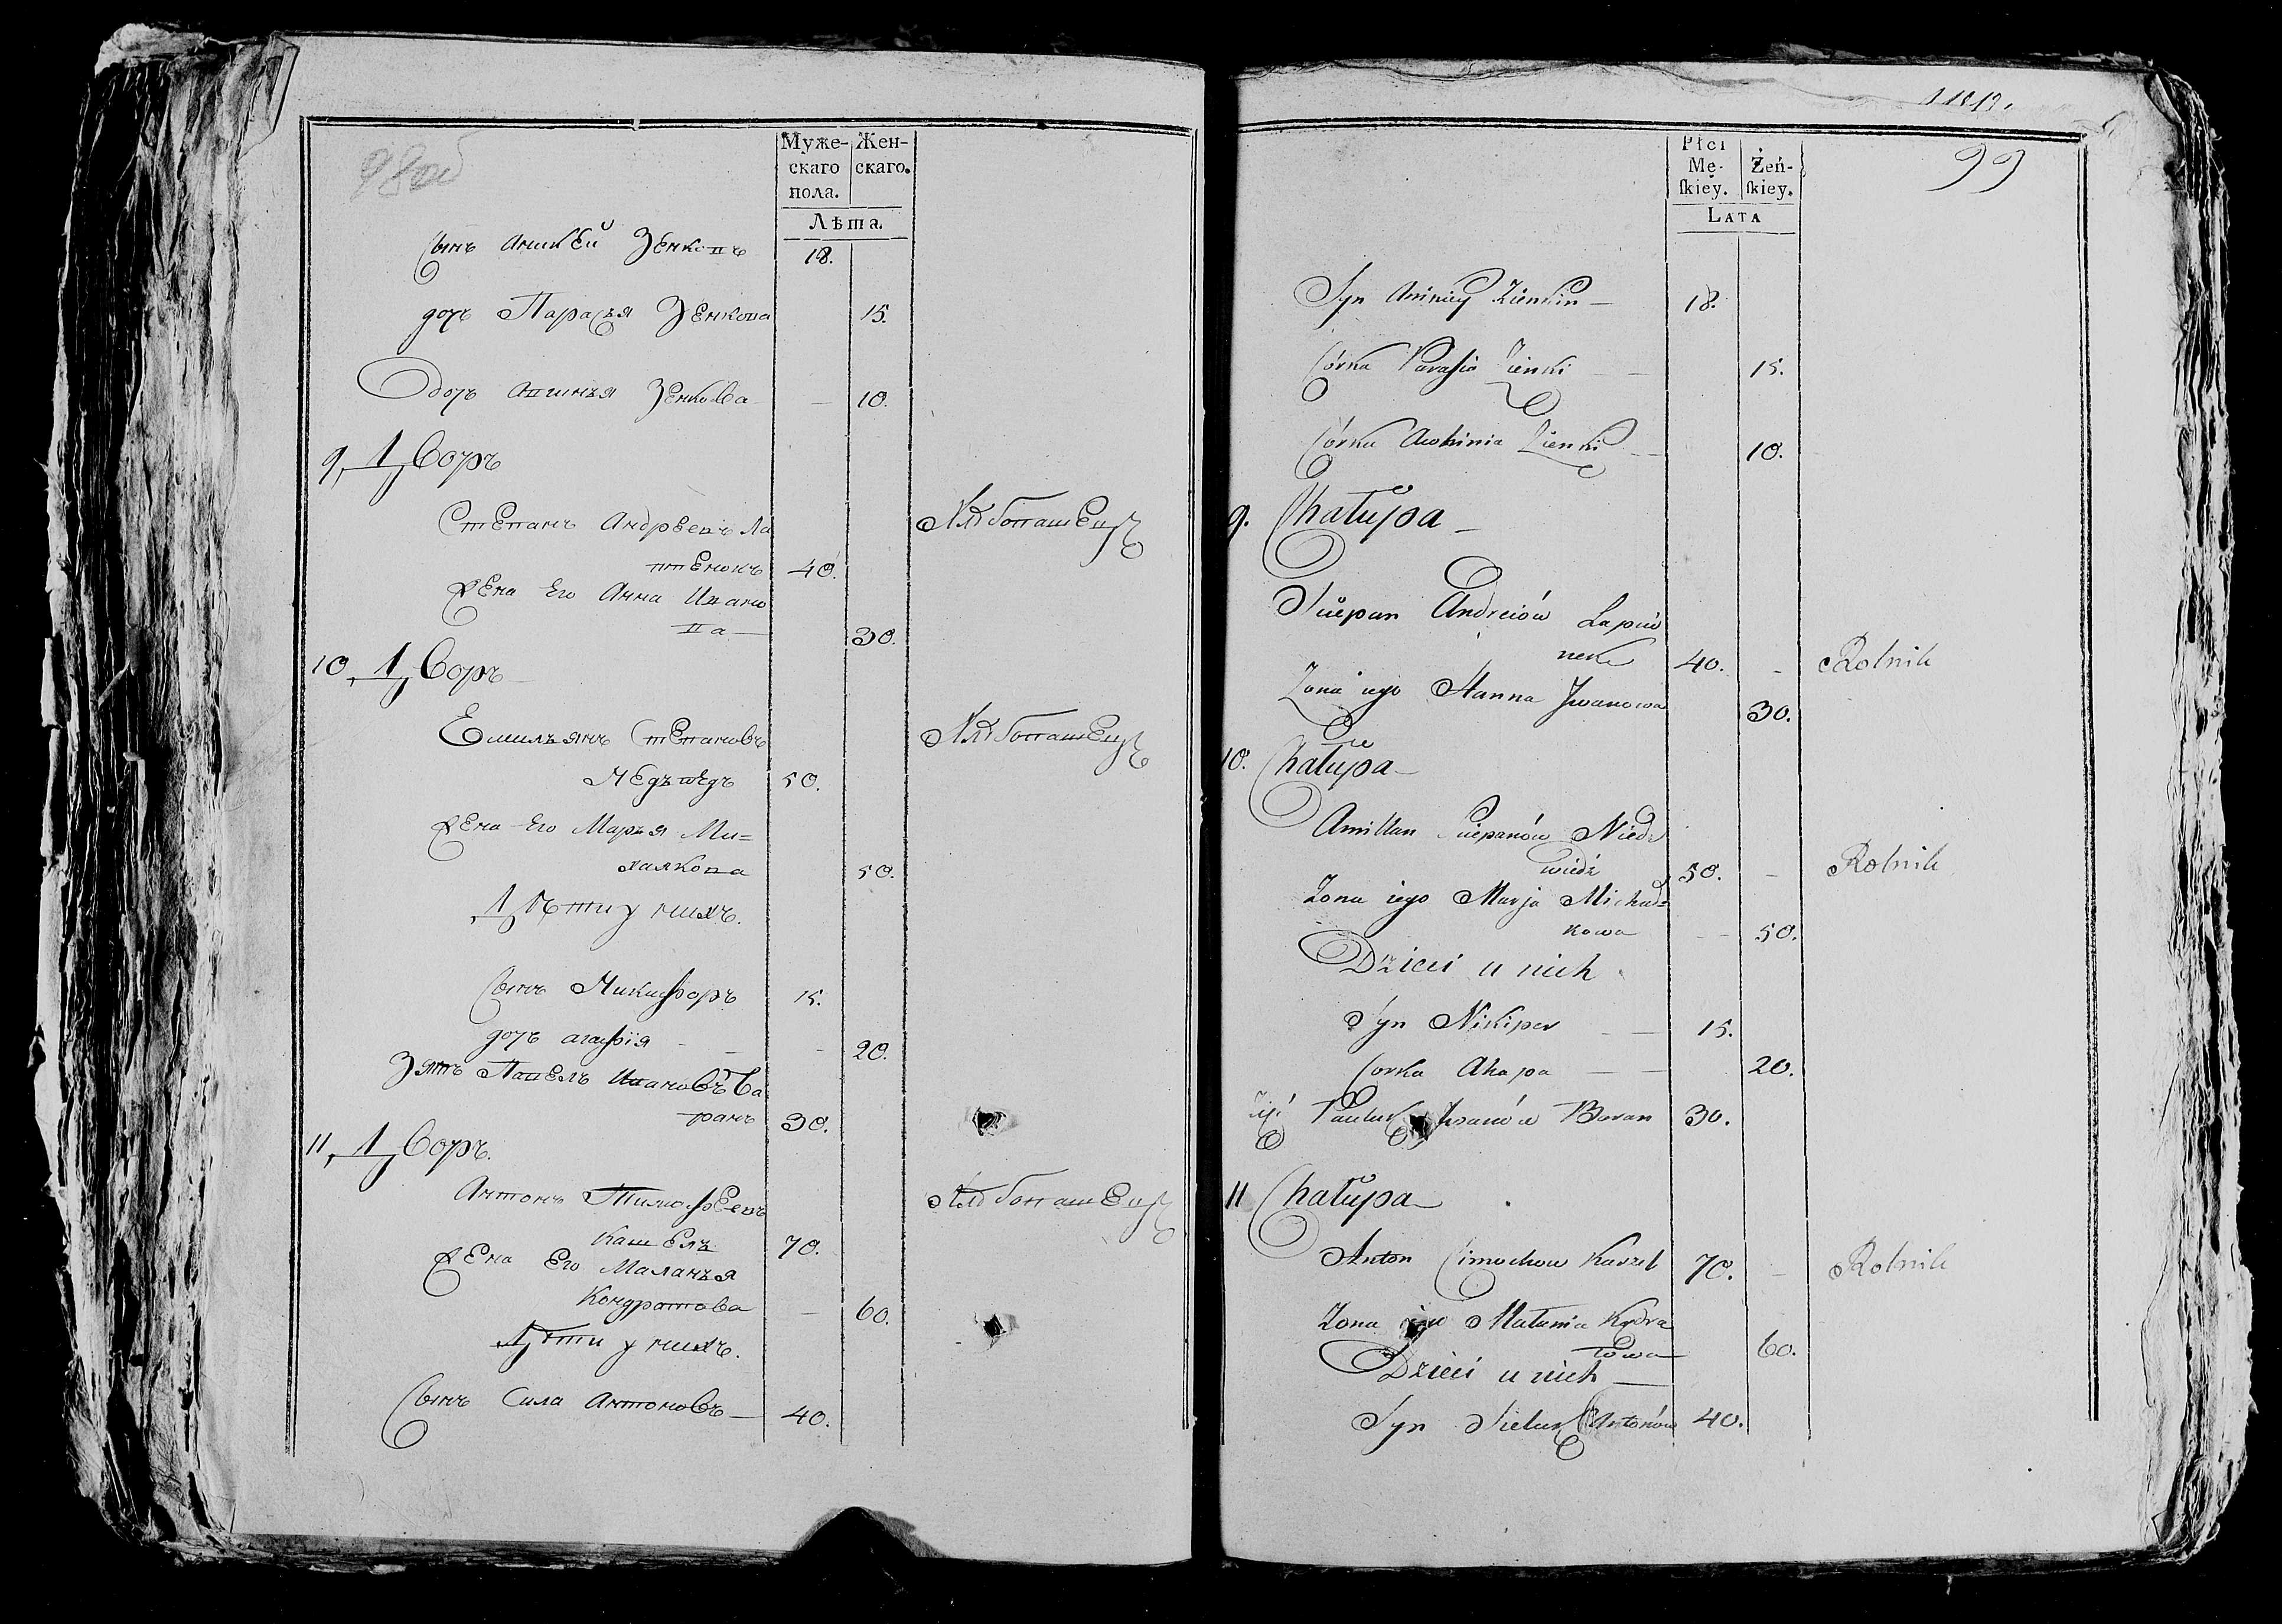 98об
Муже-
скаго
пола.
Жен-
скаго.
Лѣта.
Сынъ Аникей Зенковъ 18.
дочь Парасья Зенкова 15.
дочь Авгинья Зенкова — 10.
9, Дворъ
Степанъ Андреевъ Ла
птенокъ 40. Хлѣбопашецъ
Жена Его Анна Ивано
ва — 30.
10, Дворъ
Емильянъ Степановъ Хлѣбопашецъ
Медьведь 50.
Жена Его Марья Ми=
халкова 50.
Дѣти у нихъ.
Сынъ Никифоръ 15.
дочь агафія - - 20.
Зять Павелъ Ивановъ Ба
ранъ 30.
11, Дворъ.
Антонъ Тимофеевъ Хлѣбопашецъ
Кашель 70.
Жена Его Маланья
Кондратова — 60.
Дѣти у нихъ.
Сынъ Сила Антоновъ — 40.
99
Płci
Mę-
ſkiey.
Żeń-
ſkiey.
LATA
Syn Zienkin — 18.
Córka Parasia Zienki — 15.
Córka Awhinia Zienki — 10.
9. Chałupa —
Sciepan Andreiów Łapció
nek 40. - Rolnik
Zona iego Hanna Jwanowa 30.
10. Chałupa —
Amillan Sciepanów Niedz
wiedź 50. - Rolnik
Zona iego Marja Michał=
kowa — 50.
Dzieci u nich
Syn Nikiper — 15.
Corka Ahapa — 20.
Zięć Pauluk Jwanów Baran 30.
11 Chałupa —
Anton Cimochow Kaszel 70. - Rolnik
Zona Małania Kądra
towa 60.
Dzieci u nich —
Syn Antonów 40.